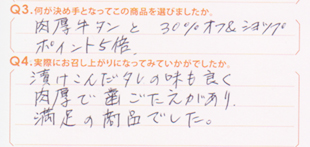 Q3.何が決め手となってこの商品を選びましたか。
肉厚牛タンと 30%オフ&ショップ
ポイント5倍.
Q4.実際にお召し上がりになってみていかがでしたか。
漬けこんだタレの味も良く
肉厚で歯ごたえがあり.
満足の商品でした。